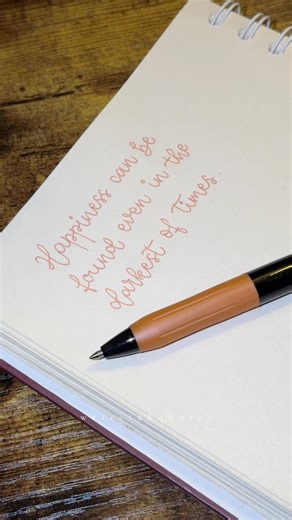 Happiness can be
found even in the
darkest of times